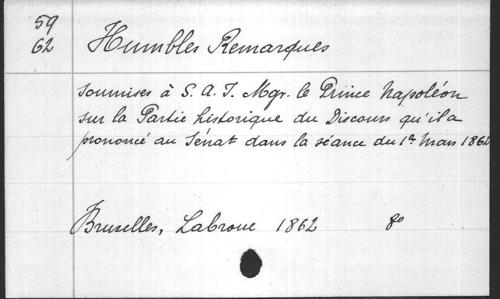 59
62
Humbles Remarques
soumises à S. A. I. Mgr. le Prince Napoléon
sur la Partie historique du Discours qu'il a
prononcé au Sénat dans la séance du 1er Mars 1862
Bruxelles, Labroue 1862 8o